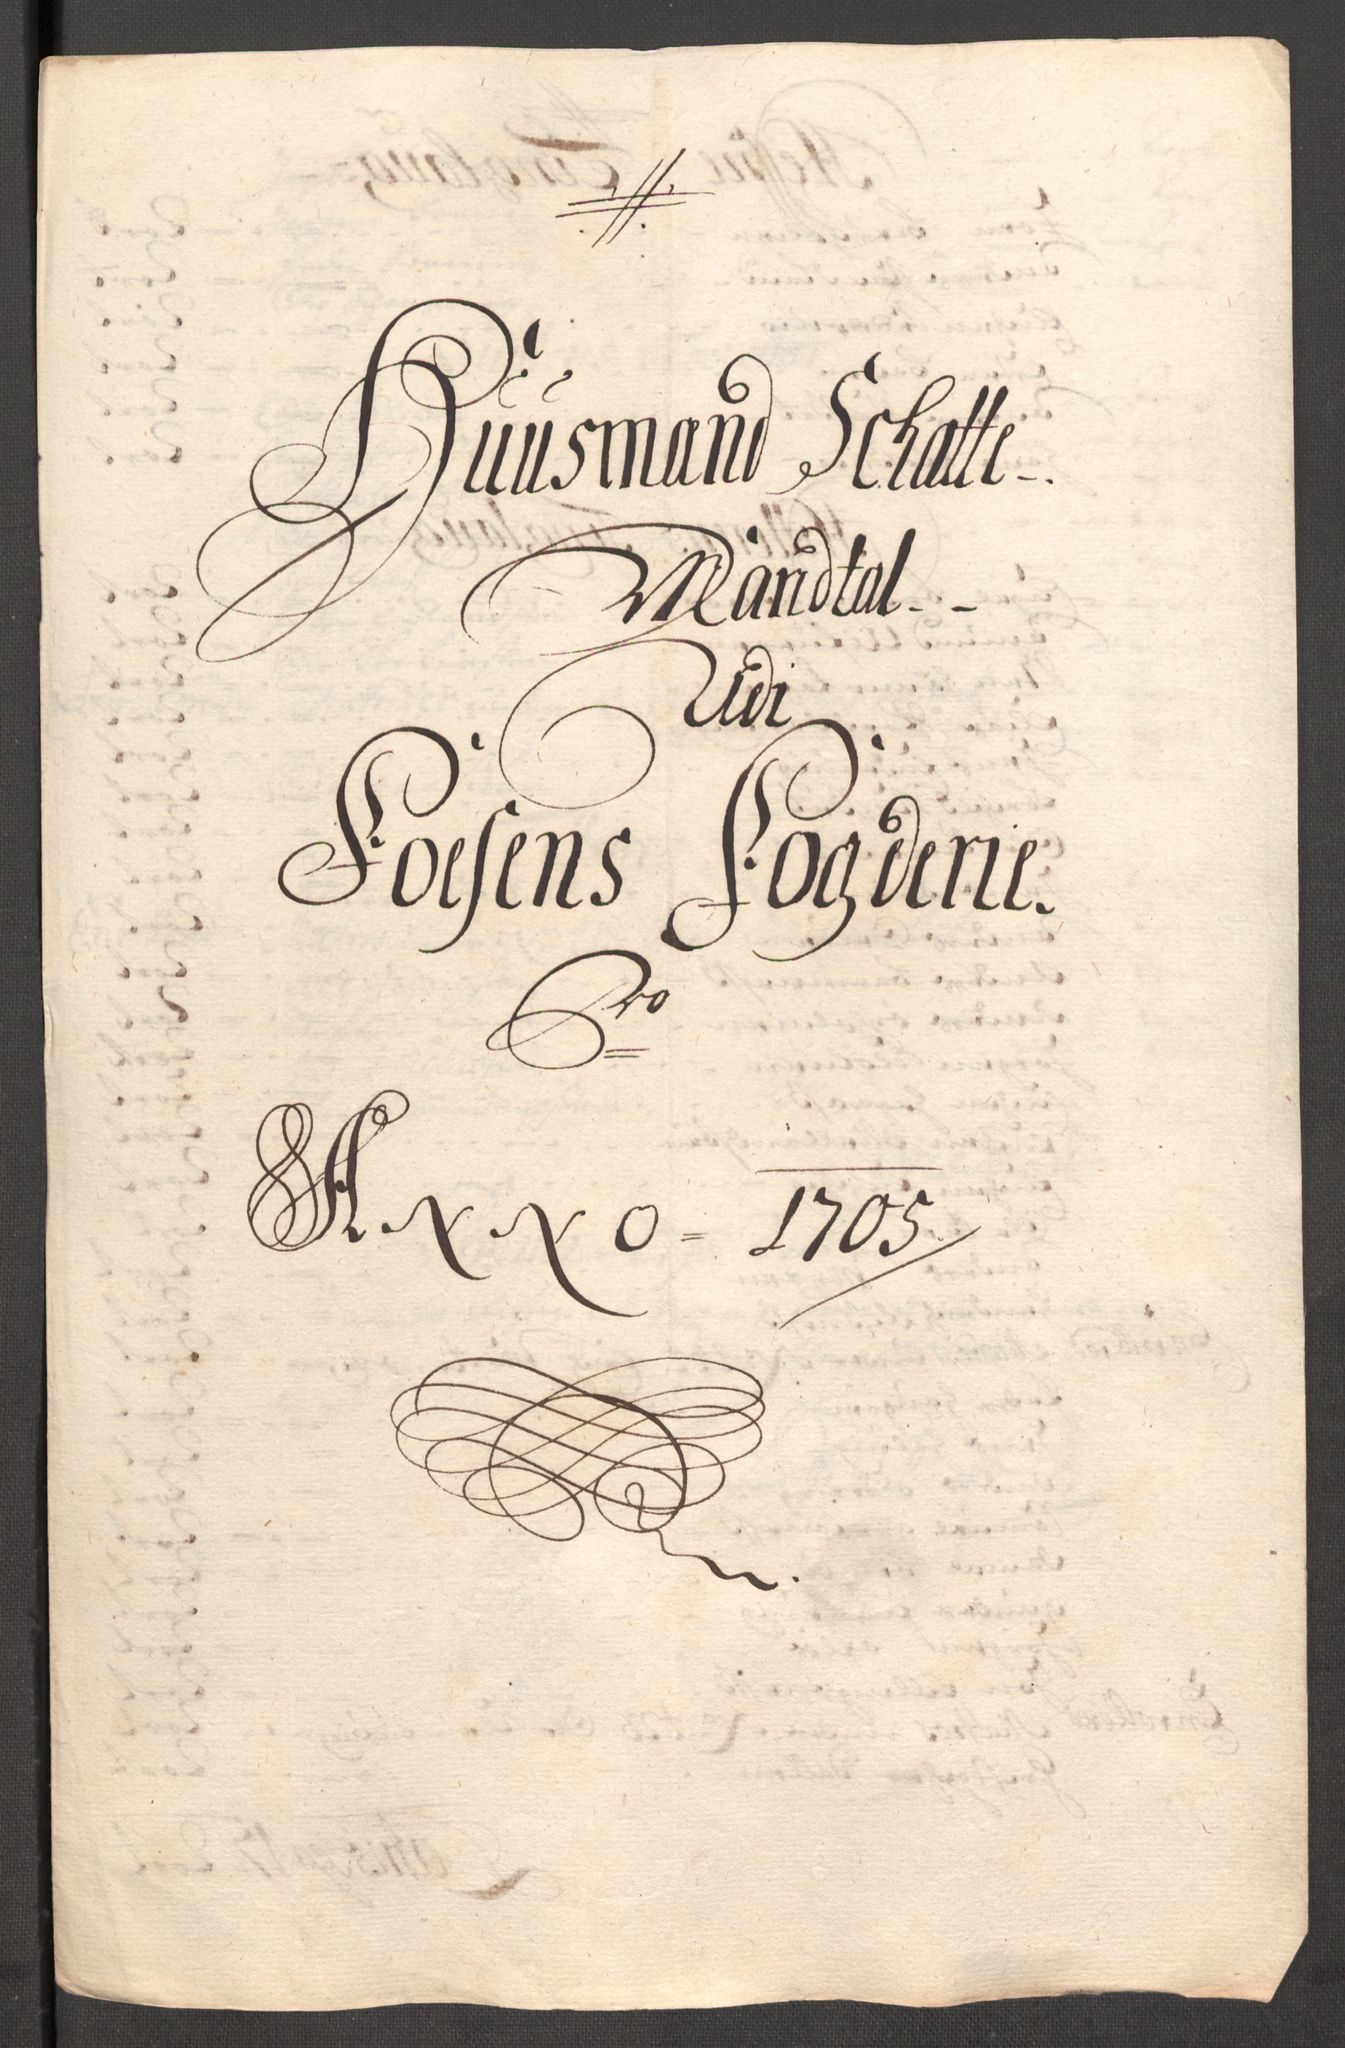 Huusmand Schatte-.
Mandtal--
Udi
Foesens Fogderie.
Pro
Anno = 1705